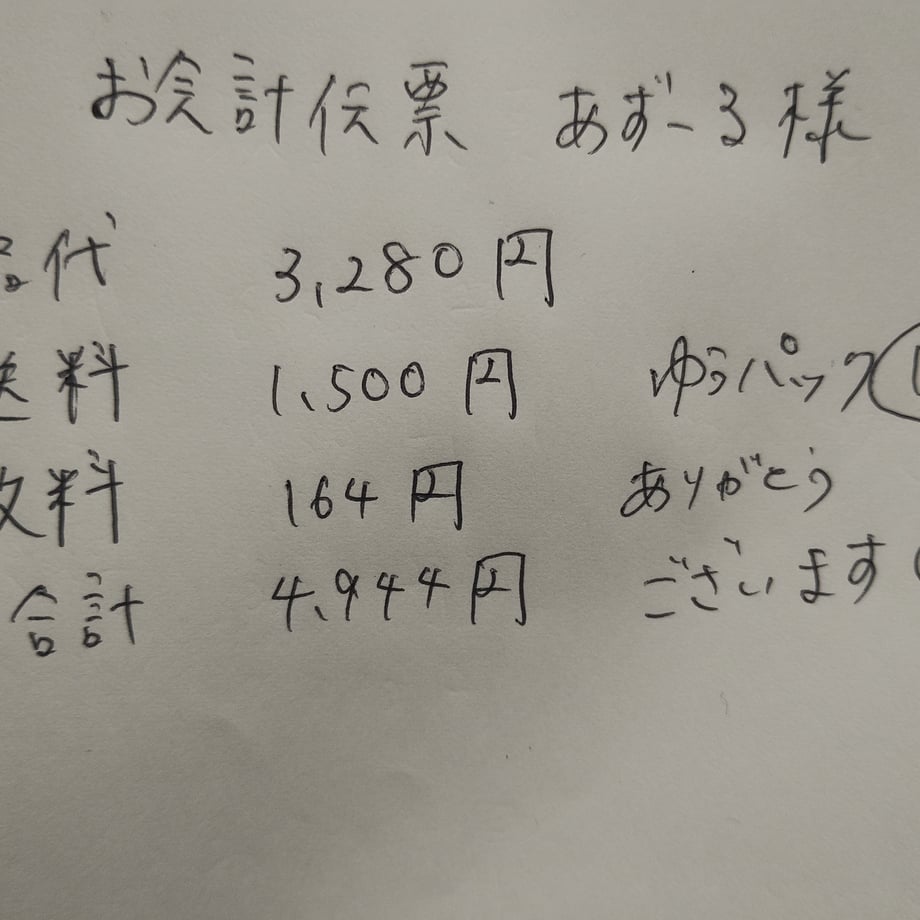 お会計伝票 あずーる様
品代 3,280円
送料 1,500円 ゆうパック
料 164円 ありがとう
合計 4,944円 ございます